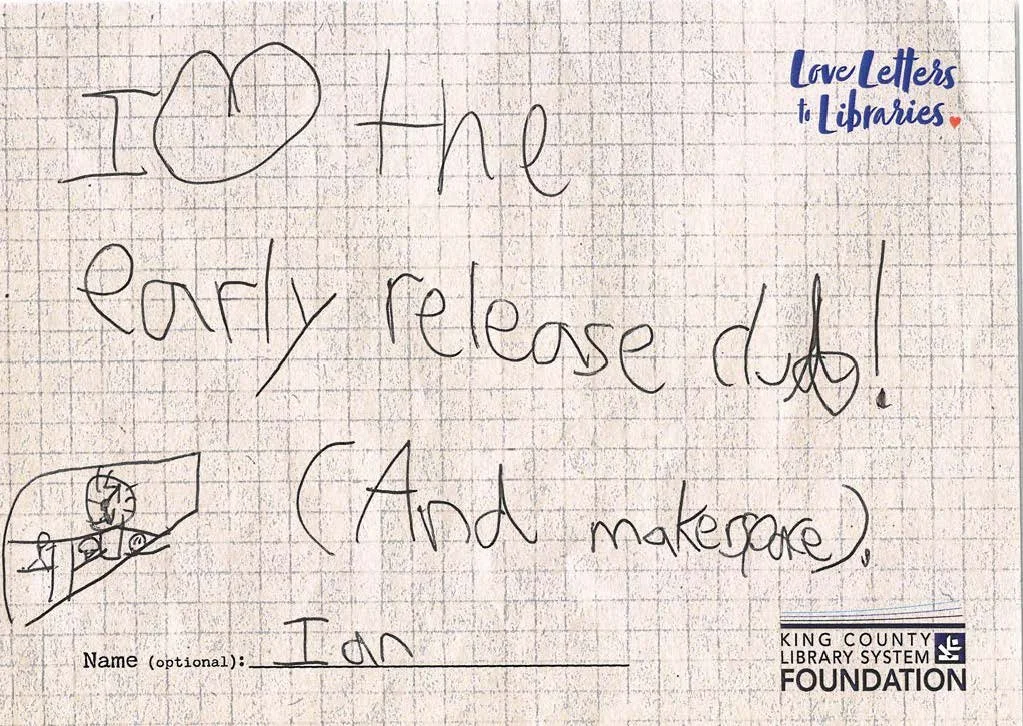 I ♡ the
Love Letters
to Libraries.
early release club!
(And makerspace).
Name (optional): Ian
KING COUNTY
LIBRARY SYSTEM
FOUNDATION